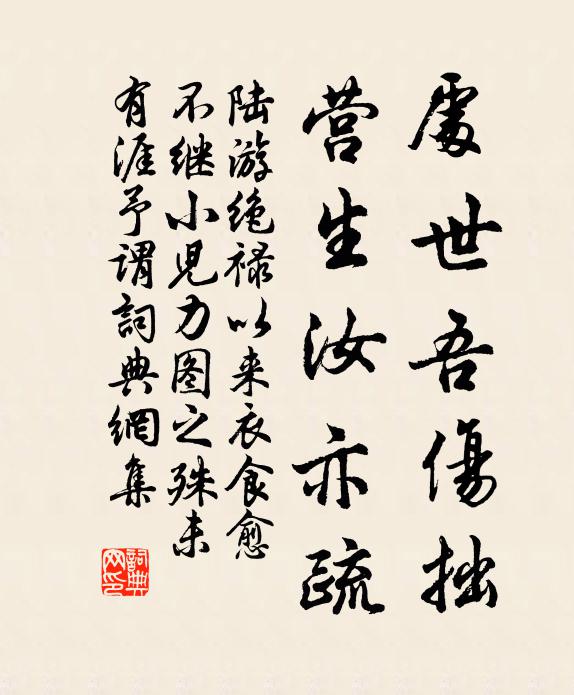 處世吾傷拙
营生汝亦疏
陆游绝禄以来衣食愈
不继小儿力图之殊未
有涯予谓詞典網集
詞典
网印